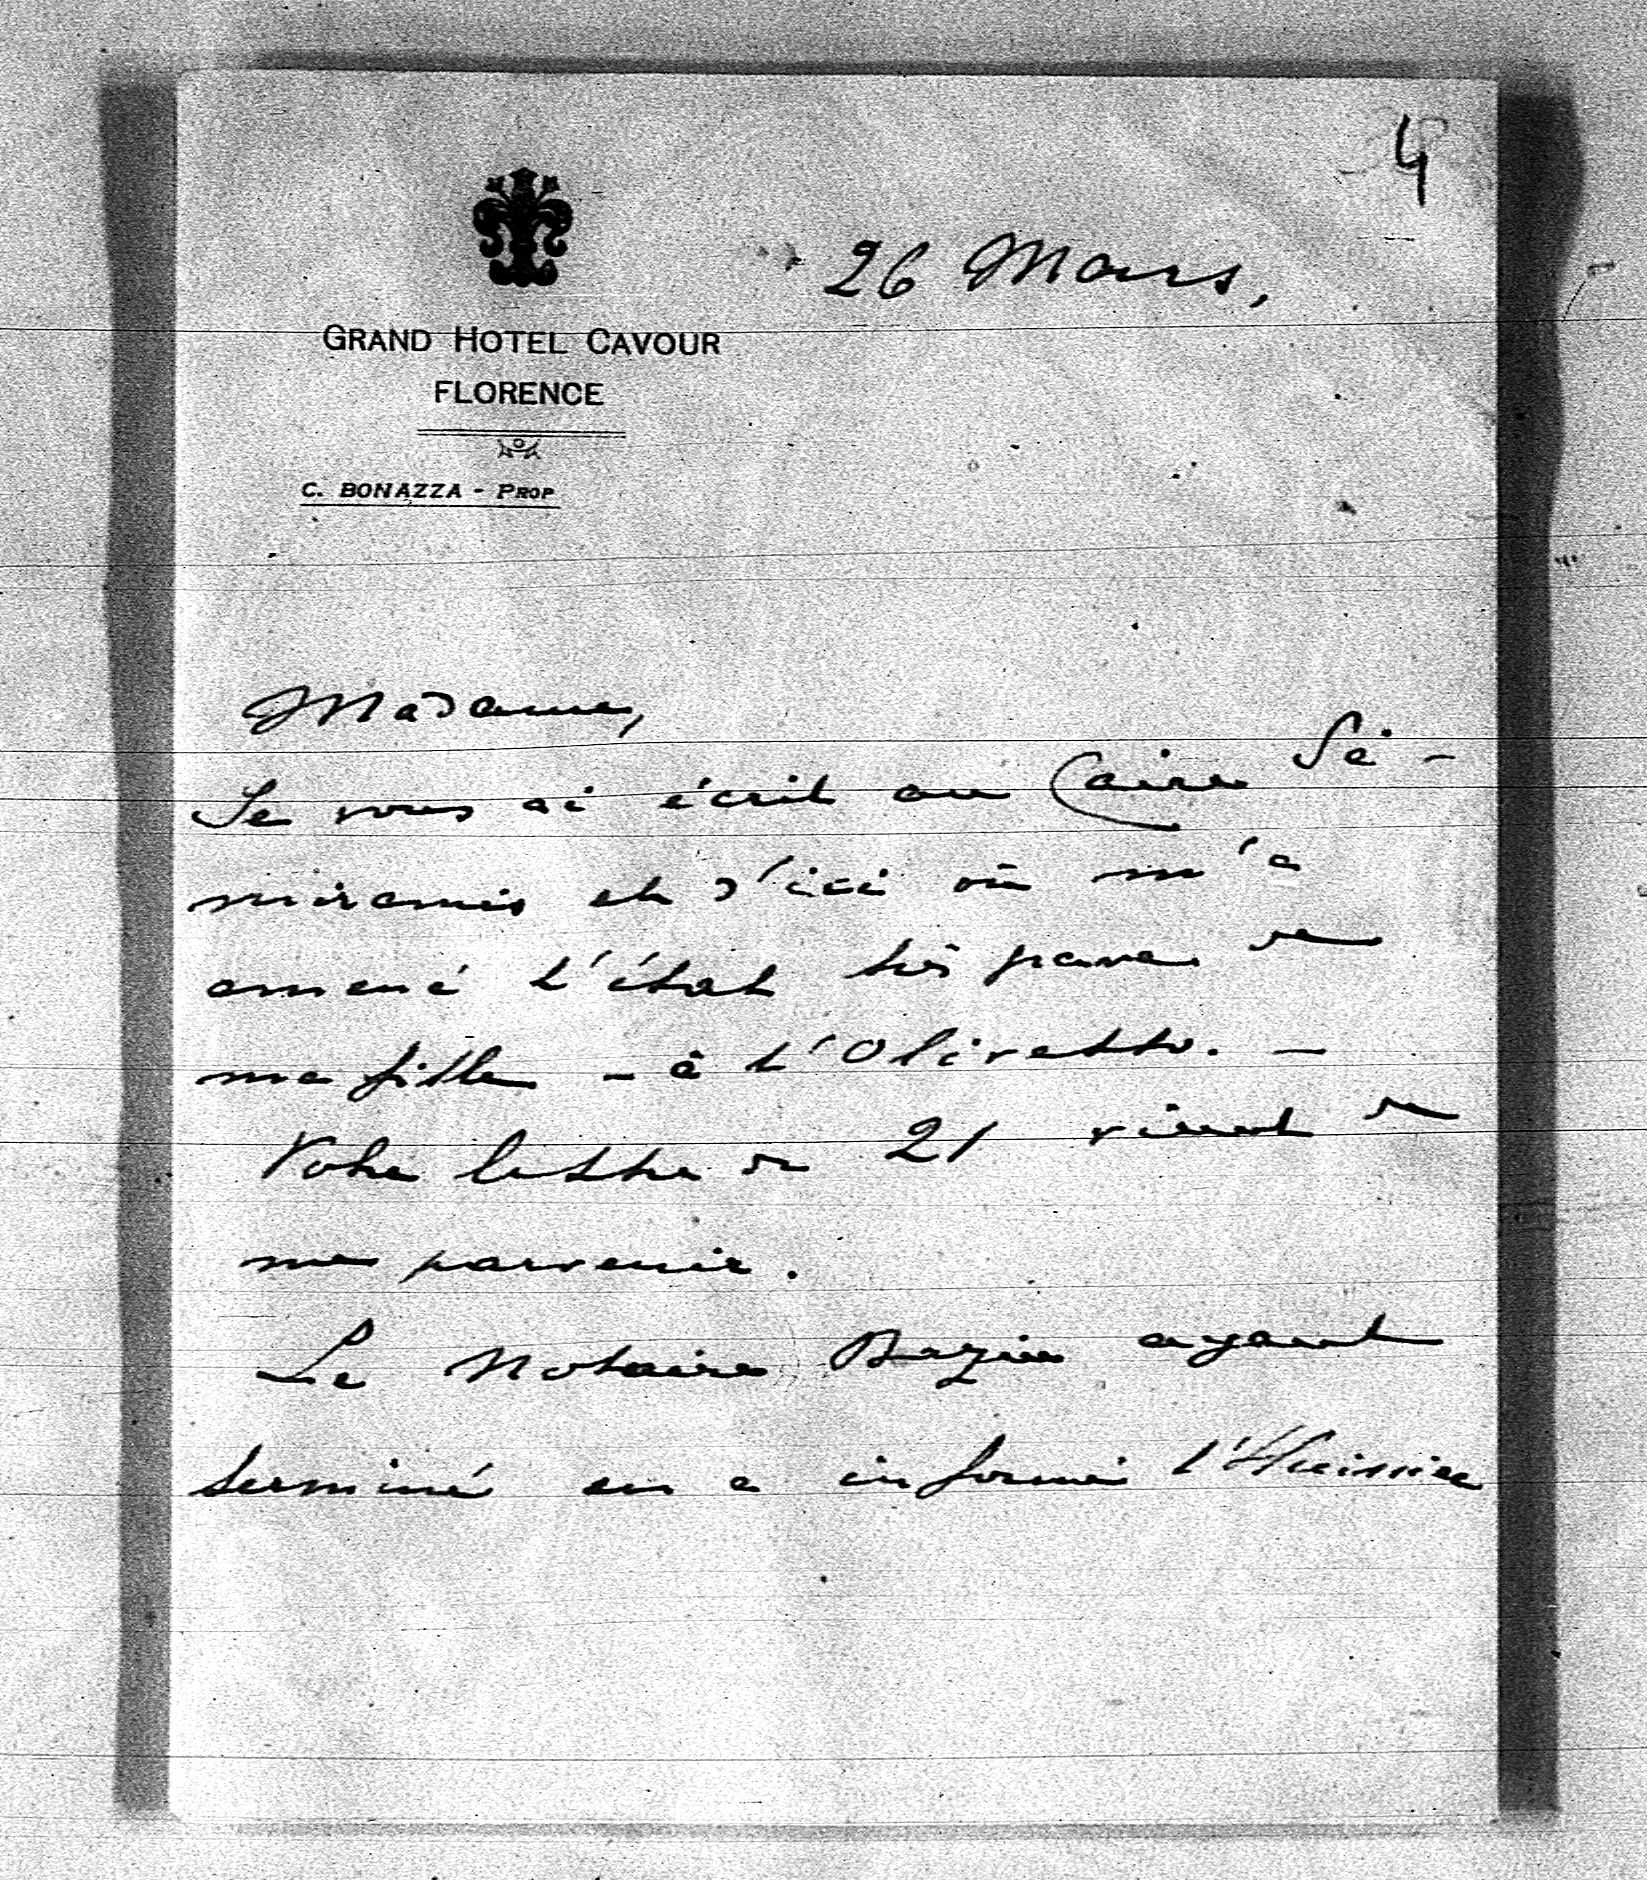 4
26 Mars,
GRAND HOTEL CAVOUR
FLORENCE
C. BONAZZA - PROP
Madame,
Je vous ai écrit au Caire Sé-
miramis et d'ici où m'a
amené l'état très grave de
ma fille - à l'Olivetto. -
Votre lettre du 21 vient de
me parvenir.
Le Notaire Bazin ayant
terminé en a informé l'Huissier